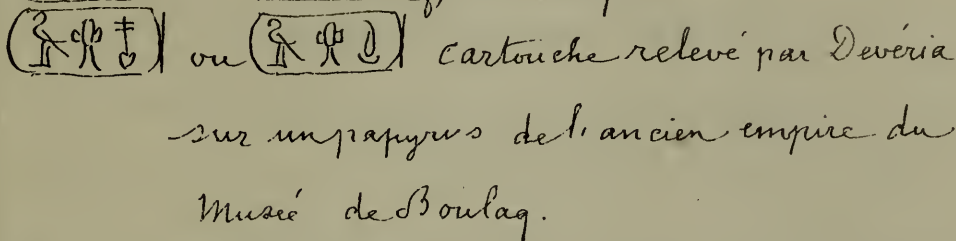 ou cartouche relevé par Devéria
sur un papyrus de l'ancien empire du
Musée de Boulaq.